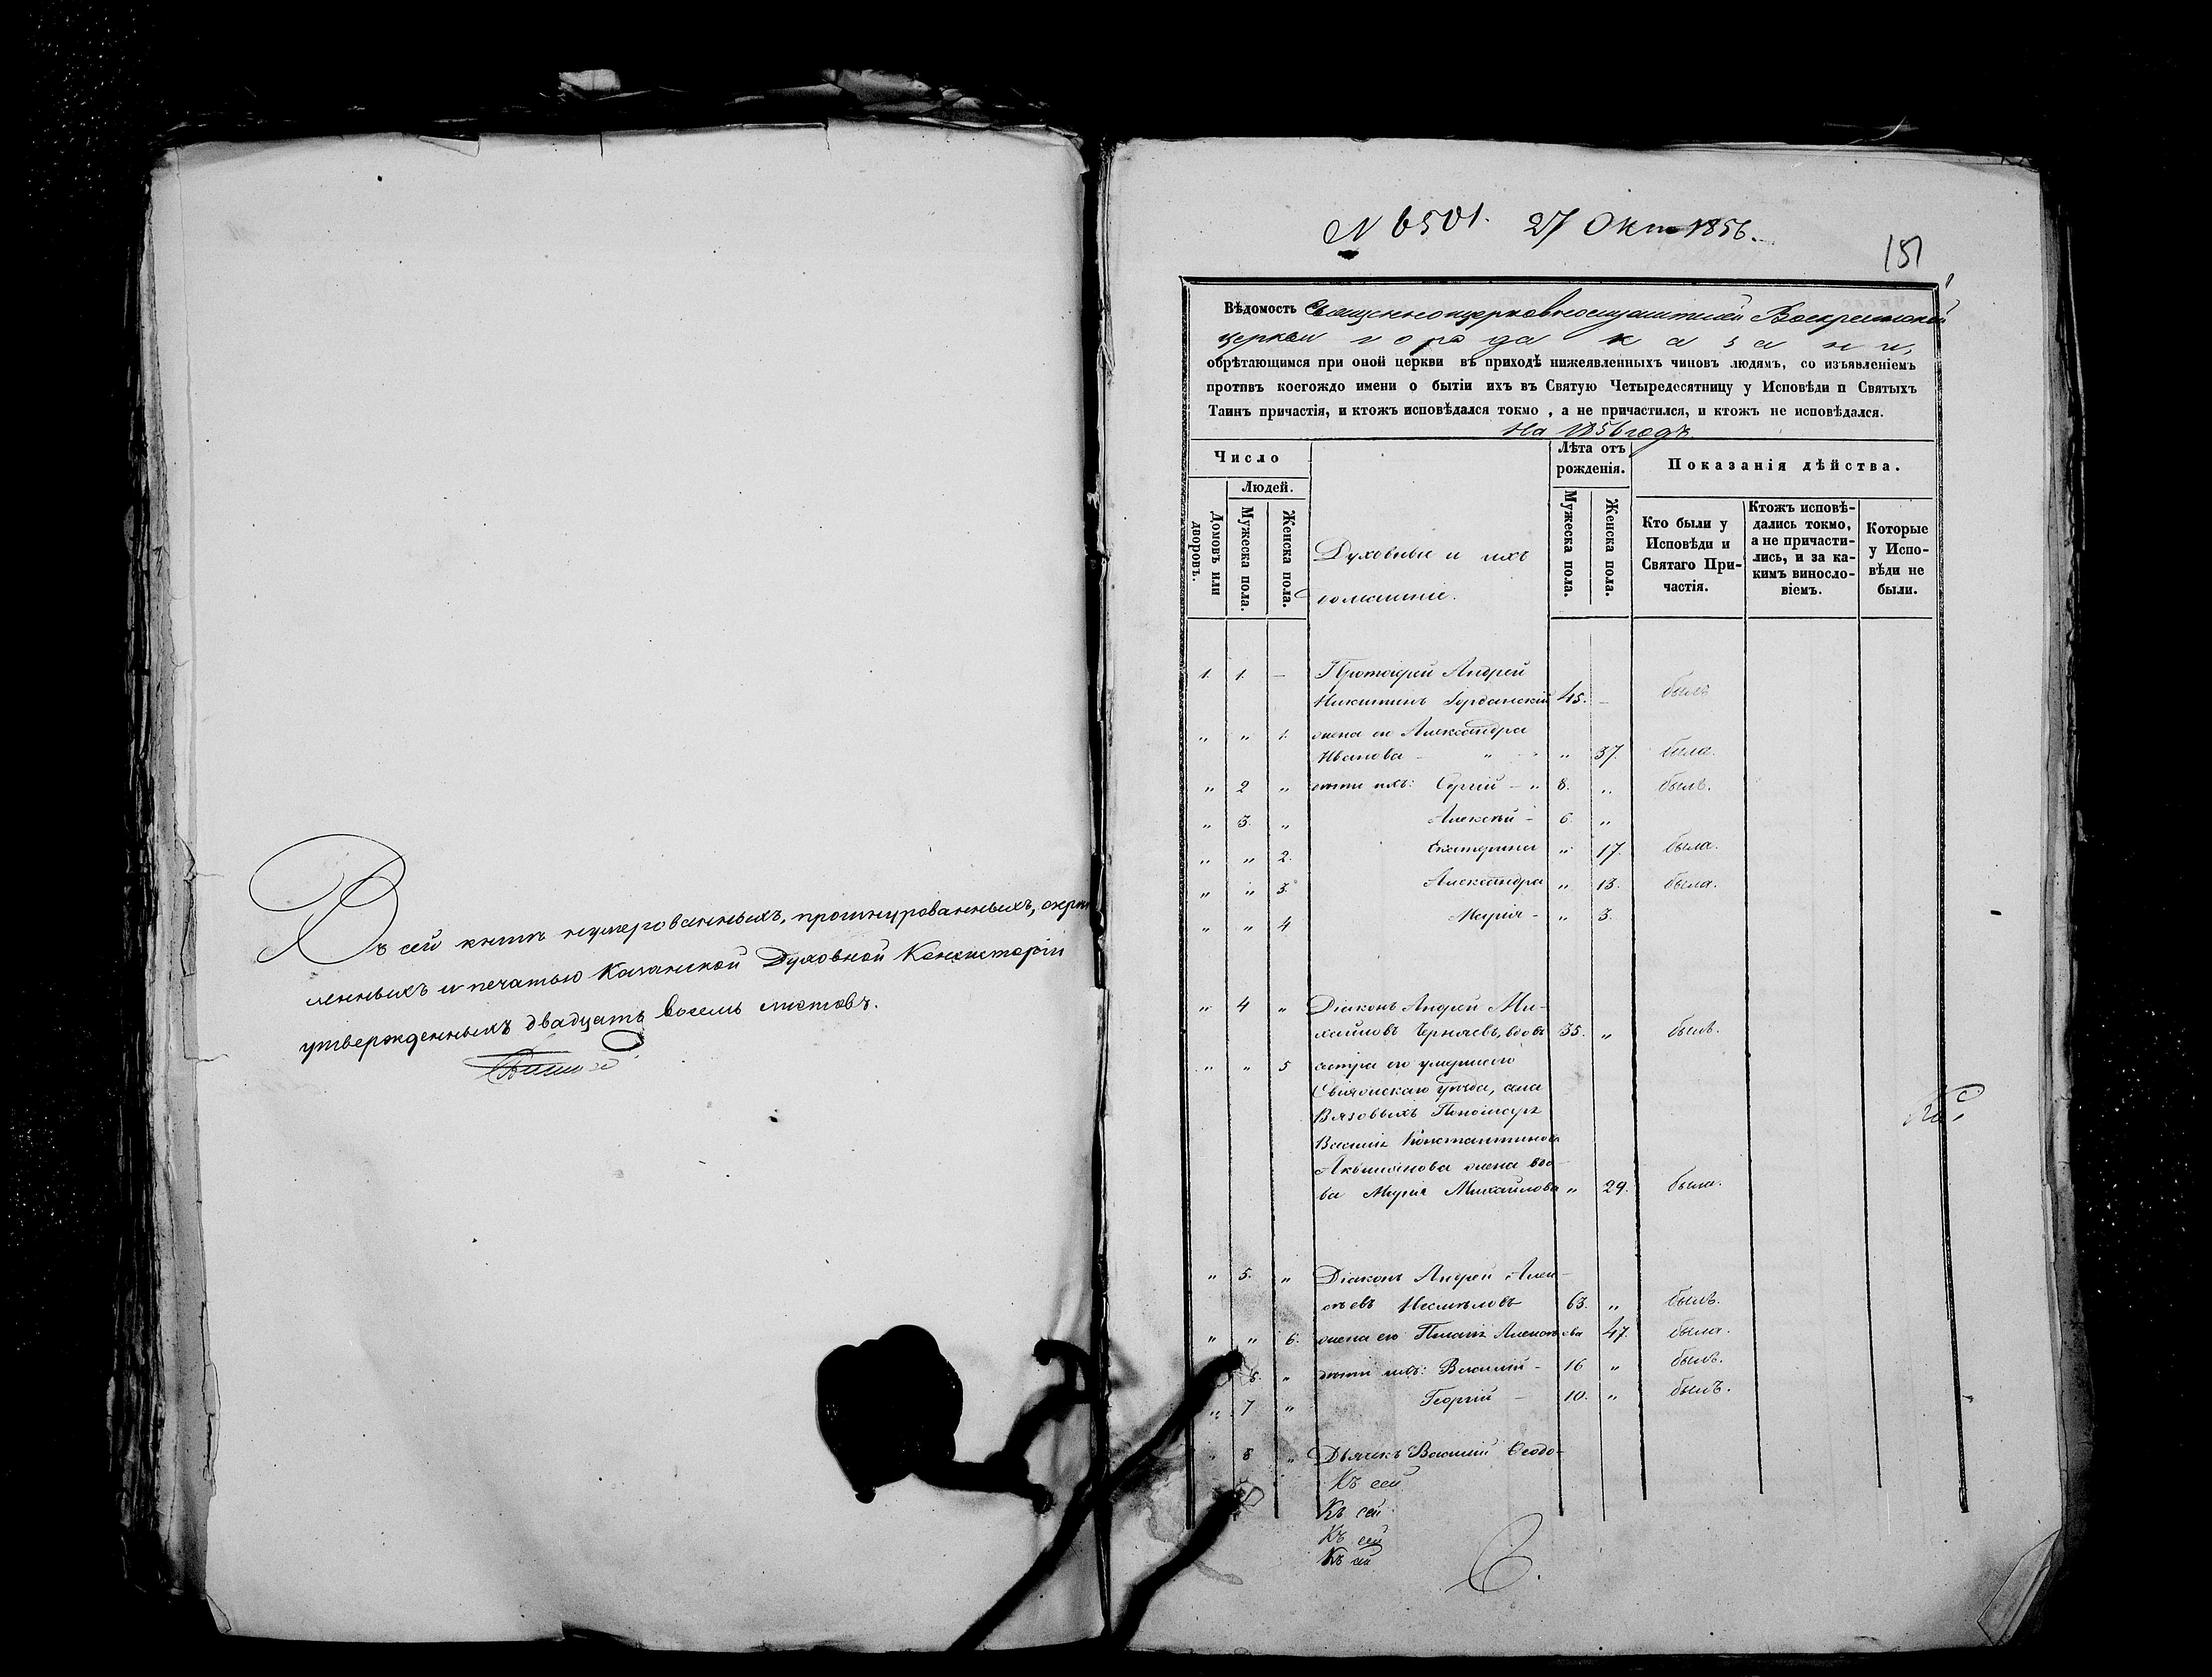 Въ сей книгѣ нумерованныхъ, прошнурованныхъ, скрѣп
ленныхъ и печатью Казанской Духовной Консисторіи
утвержденныхъ двадцать восемь листовъ.
N 6501. 27 Окт 1856.
151
Вѣдомость Священноцерковнослужителей Воскресенской
церкви города Казани,
обрѣтающимся при оной церкви въ приходѣ нижеявленныхъ чиновъ людямъ, со изъявленіемъ
противъ коегождо имени о бытіи ихъ въ Святую Четыредесятницу у Исповѣди и Святыхъ
Таинъ причастія, и ктожъ исповѣдался токмо, а не причастился, и ктожъ не исповѣдался.
На 1856 годъ.
Число
Людей.
Домовъ или дворовъ.
Мужеска пола.
Женска пола.
Духовные и ихъ
домашніе.
Лѣта отъ рожденія.
Мужеска пола.
Женска пола.
Показанія дѣйства.
Кто были у Исповѣди и Святаго Причастія.
Ктожъ исповѣ-
дались токмо,
а не причасти-
лись, и за ка-
кимъ виносло-
віемъ.
Которые
у Испо-
вѣди не
были.
1. 1. — Протоіерей Андрей
Никитинъ 45. — былъ
" " 1. жена его Александра
Иванова — " " 37. была.
" 2 " дѣти ихъ: Сергій — " 8. " былъ.
" 3. " Алексѣй — 6. "
" " 2. Екатерина " 17. была.
" " 3. Александра " 13. была.
" " 4 Марія — " 3.
" 4 " Діаконъ Андрей Ми-
хайловъ Черняевъ, вдовъ 35. " былъ.
" " 5 сестра его умершаго
Свіяжскаго уѣзда, села
Вязовыхъ Пономаря
Василія Константинова
жена вдо-
ва Марія Михайлова " 29. была.
" 5. " Діаконъ Андрей Алек-
сѣевъ Несмѣловъ 63. " былъ.
" " 6. жена его Алексѣева 47. была.
6. " дѣти ихъ: Василій — 16 " былъ.
" 7 " Георгій — 10. " былъ.
" 8 " Дьячекъ Василій Ѳеодо-
Къ сей
Къ сей
Къ сей
Къ сей